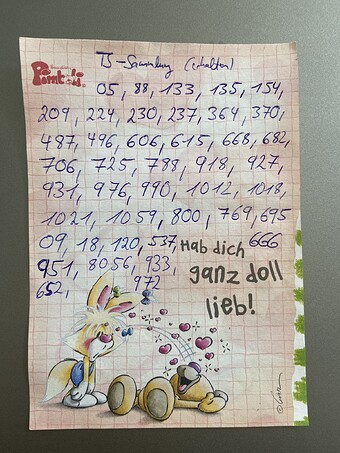 Pimboli
TS-Sammlung (erhalten)
05, 88, 133, 135, 154,
209, 224, 230, 237, 364, 370,
487, 496, 606, 615, 668, 682,
706, 725, 788, 918, 927,
931, 976, 990, 1012, 1018,
1021, 1059, 800, 769, 695
09, 18, 120, 537, 666
951, 8056, 933,
652, 972
Hab dich
ganz doll
lieb!